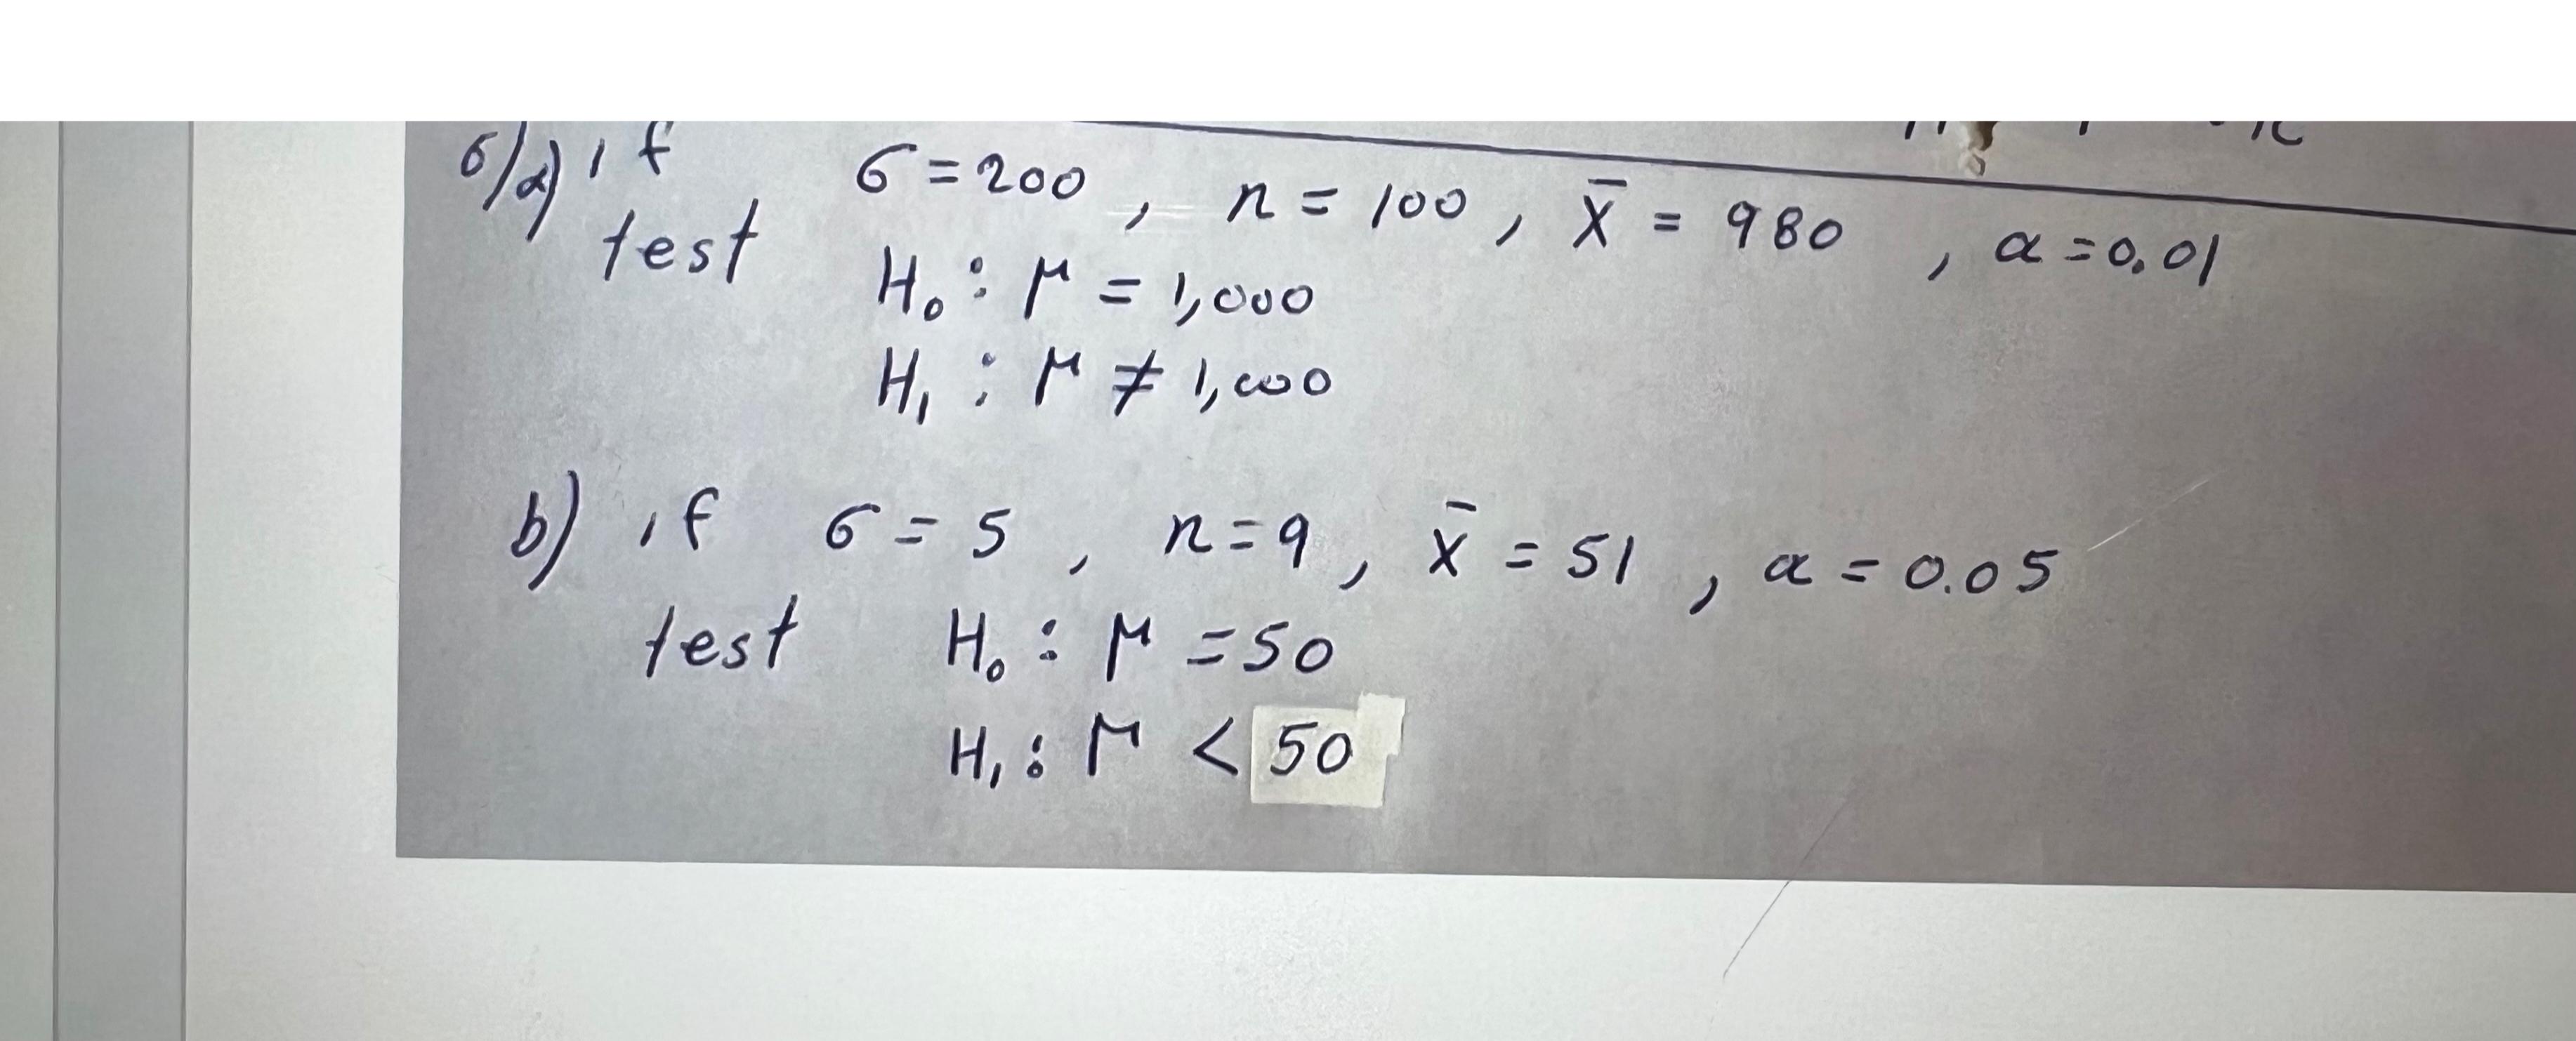 6/a) if σ = 200 , n = 100 , x̄ = 980 , α = 0.01
test H₀ : μ = 1,000
H₁ : μ ≠ 1,000
b) if σ = 5 , n = 9 , x̄ = 51 , α = 0.05
test H₀ : μ = 50
H₁ : μ < 50